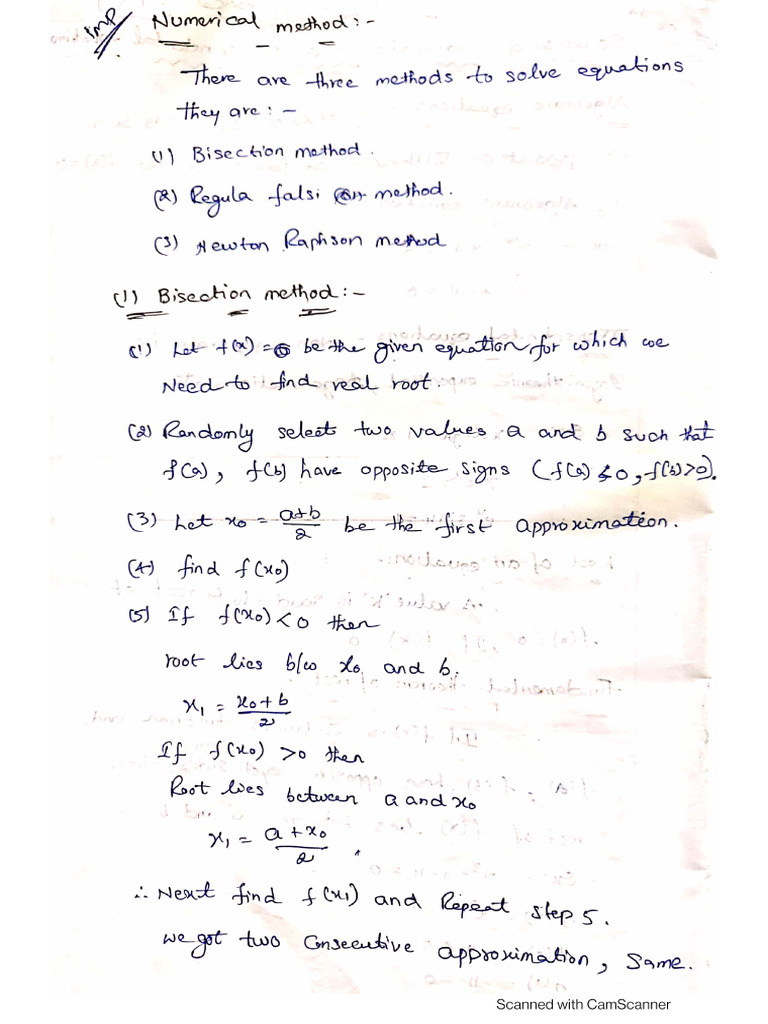 Imp
Numerical method:-
There are three methods to solve equations
they are:-
(1) Bisection method.
(2) Regula falsi method.
(3) Newton Raphson method
(1) Bisection method:-
(1) Let f(x)=0 be the given equation, for which we
Need to find real root.
(2) Randomly select two values a and b such that
f(a), f(b) have opposite signs (f(a)<0, f(b)>0).
(3) Let x₀ = a+b/2 be the first approximation.
(4) find f(x₀)
(5) If f(x₀)<0 then
root lies b/w x₀ and b.
x₁ = x₀+b/2
If f(x₀) >0 then
Root lies between a and x₀
x₁ = a+x₀/2.
∴ Next find f(x₁) and Repeat step 5.
we got two Consecutive approximation, Same.
Scanned with CamScanner